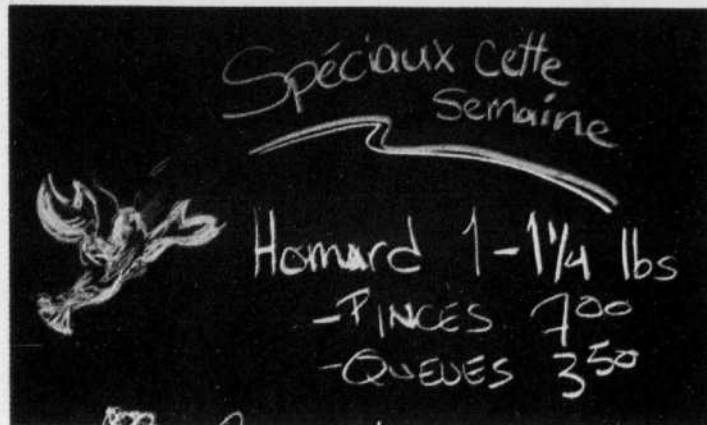 Spéciaux cette
Semaine
Homard 1-1¼ lbs
-PINCES 7⁰⁰
-QUEUES 3⁵⁰